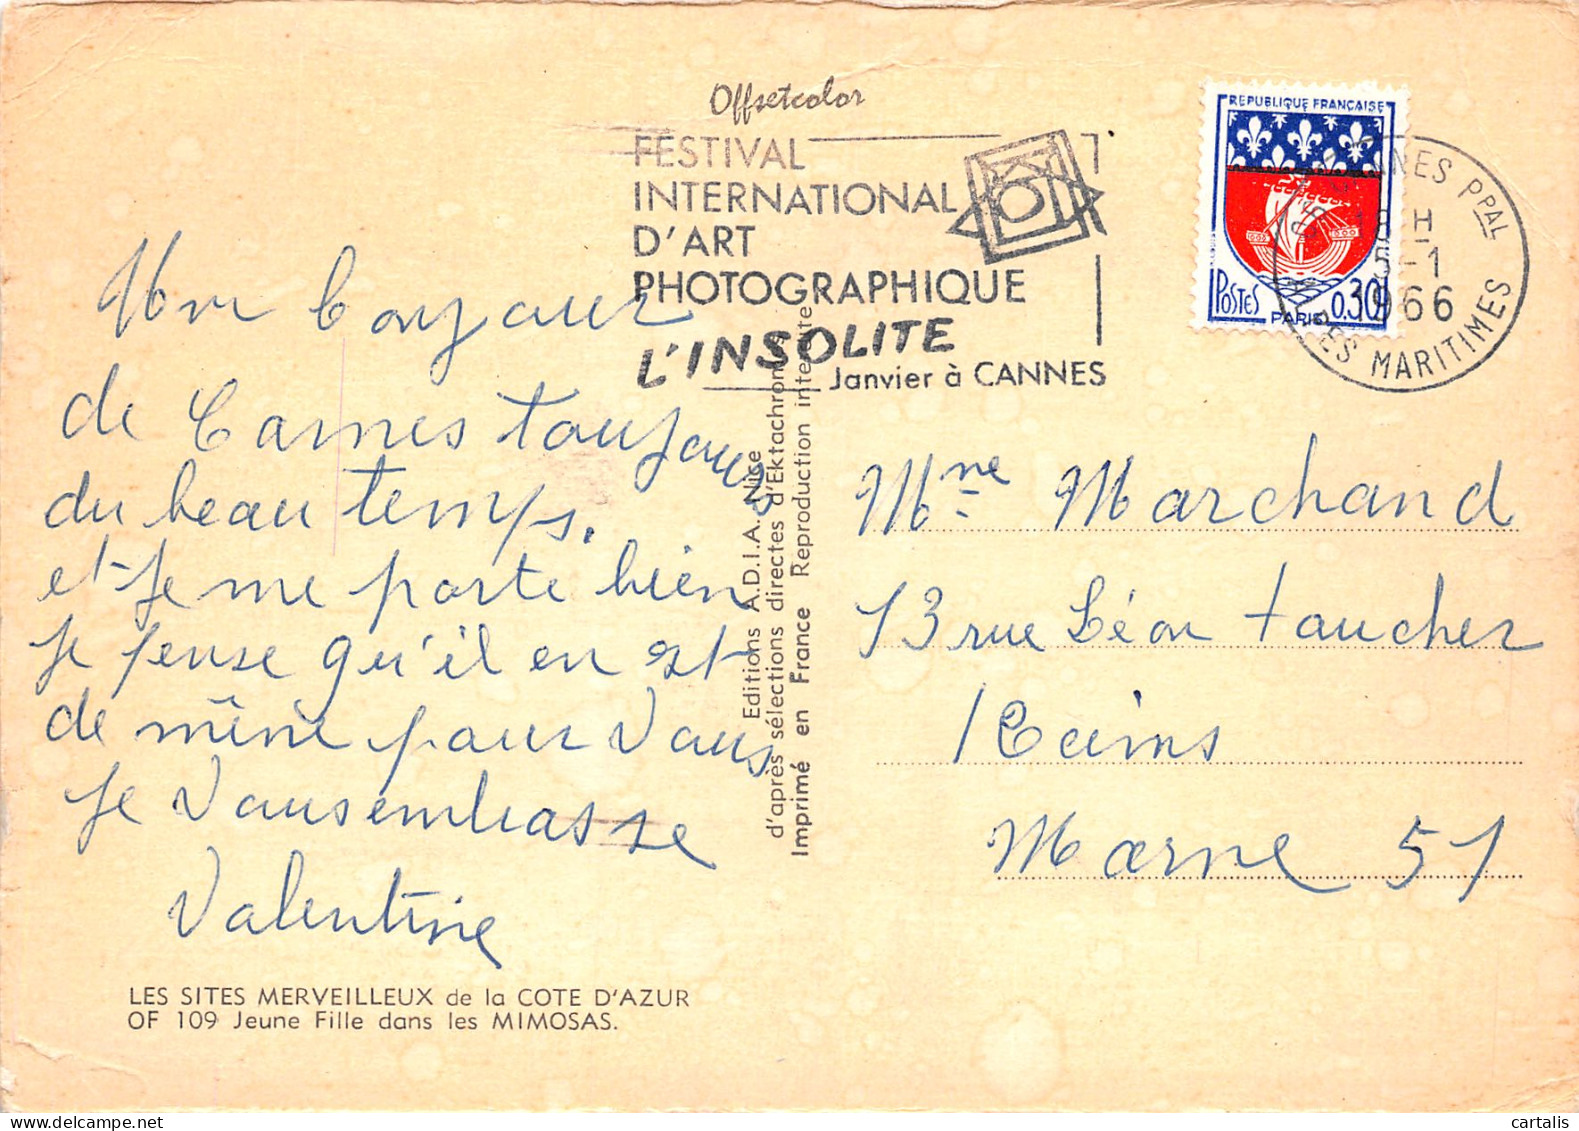 Offsetcolor
FESTIVAL
INTERNATIONAL
D'ART
PHOTOGRAPHIQUE
L'INSOLITE
Janvier à CANNES
REPUBLIQUE FRANÇAISE
POSTES
PARIS
0,30
CANNES PPAL
18 H
5-1
1966
ALPES MARITIMES
Un bonjour
de Cannes toujours
du beau temps.
et je me porte bien
je pense qu'il en est
de même pour vous
je vous embrasse
Valentine
LES SITES MERVEILLEUX de la COTE D'AZUR
OF 109 Jeune Fille dans les MIMOSAS.
Editions A.D.I.A. Nice
d'après sélections directes d'Ektachrome
Imprimé en France Reproduction interdite
Mme Marchand
13 rue Léon Faucher
Reims
Marne 51
cartalis